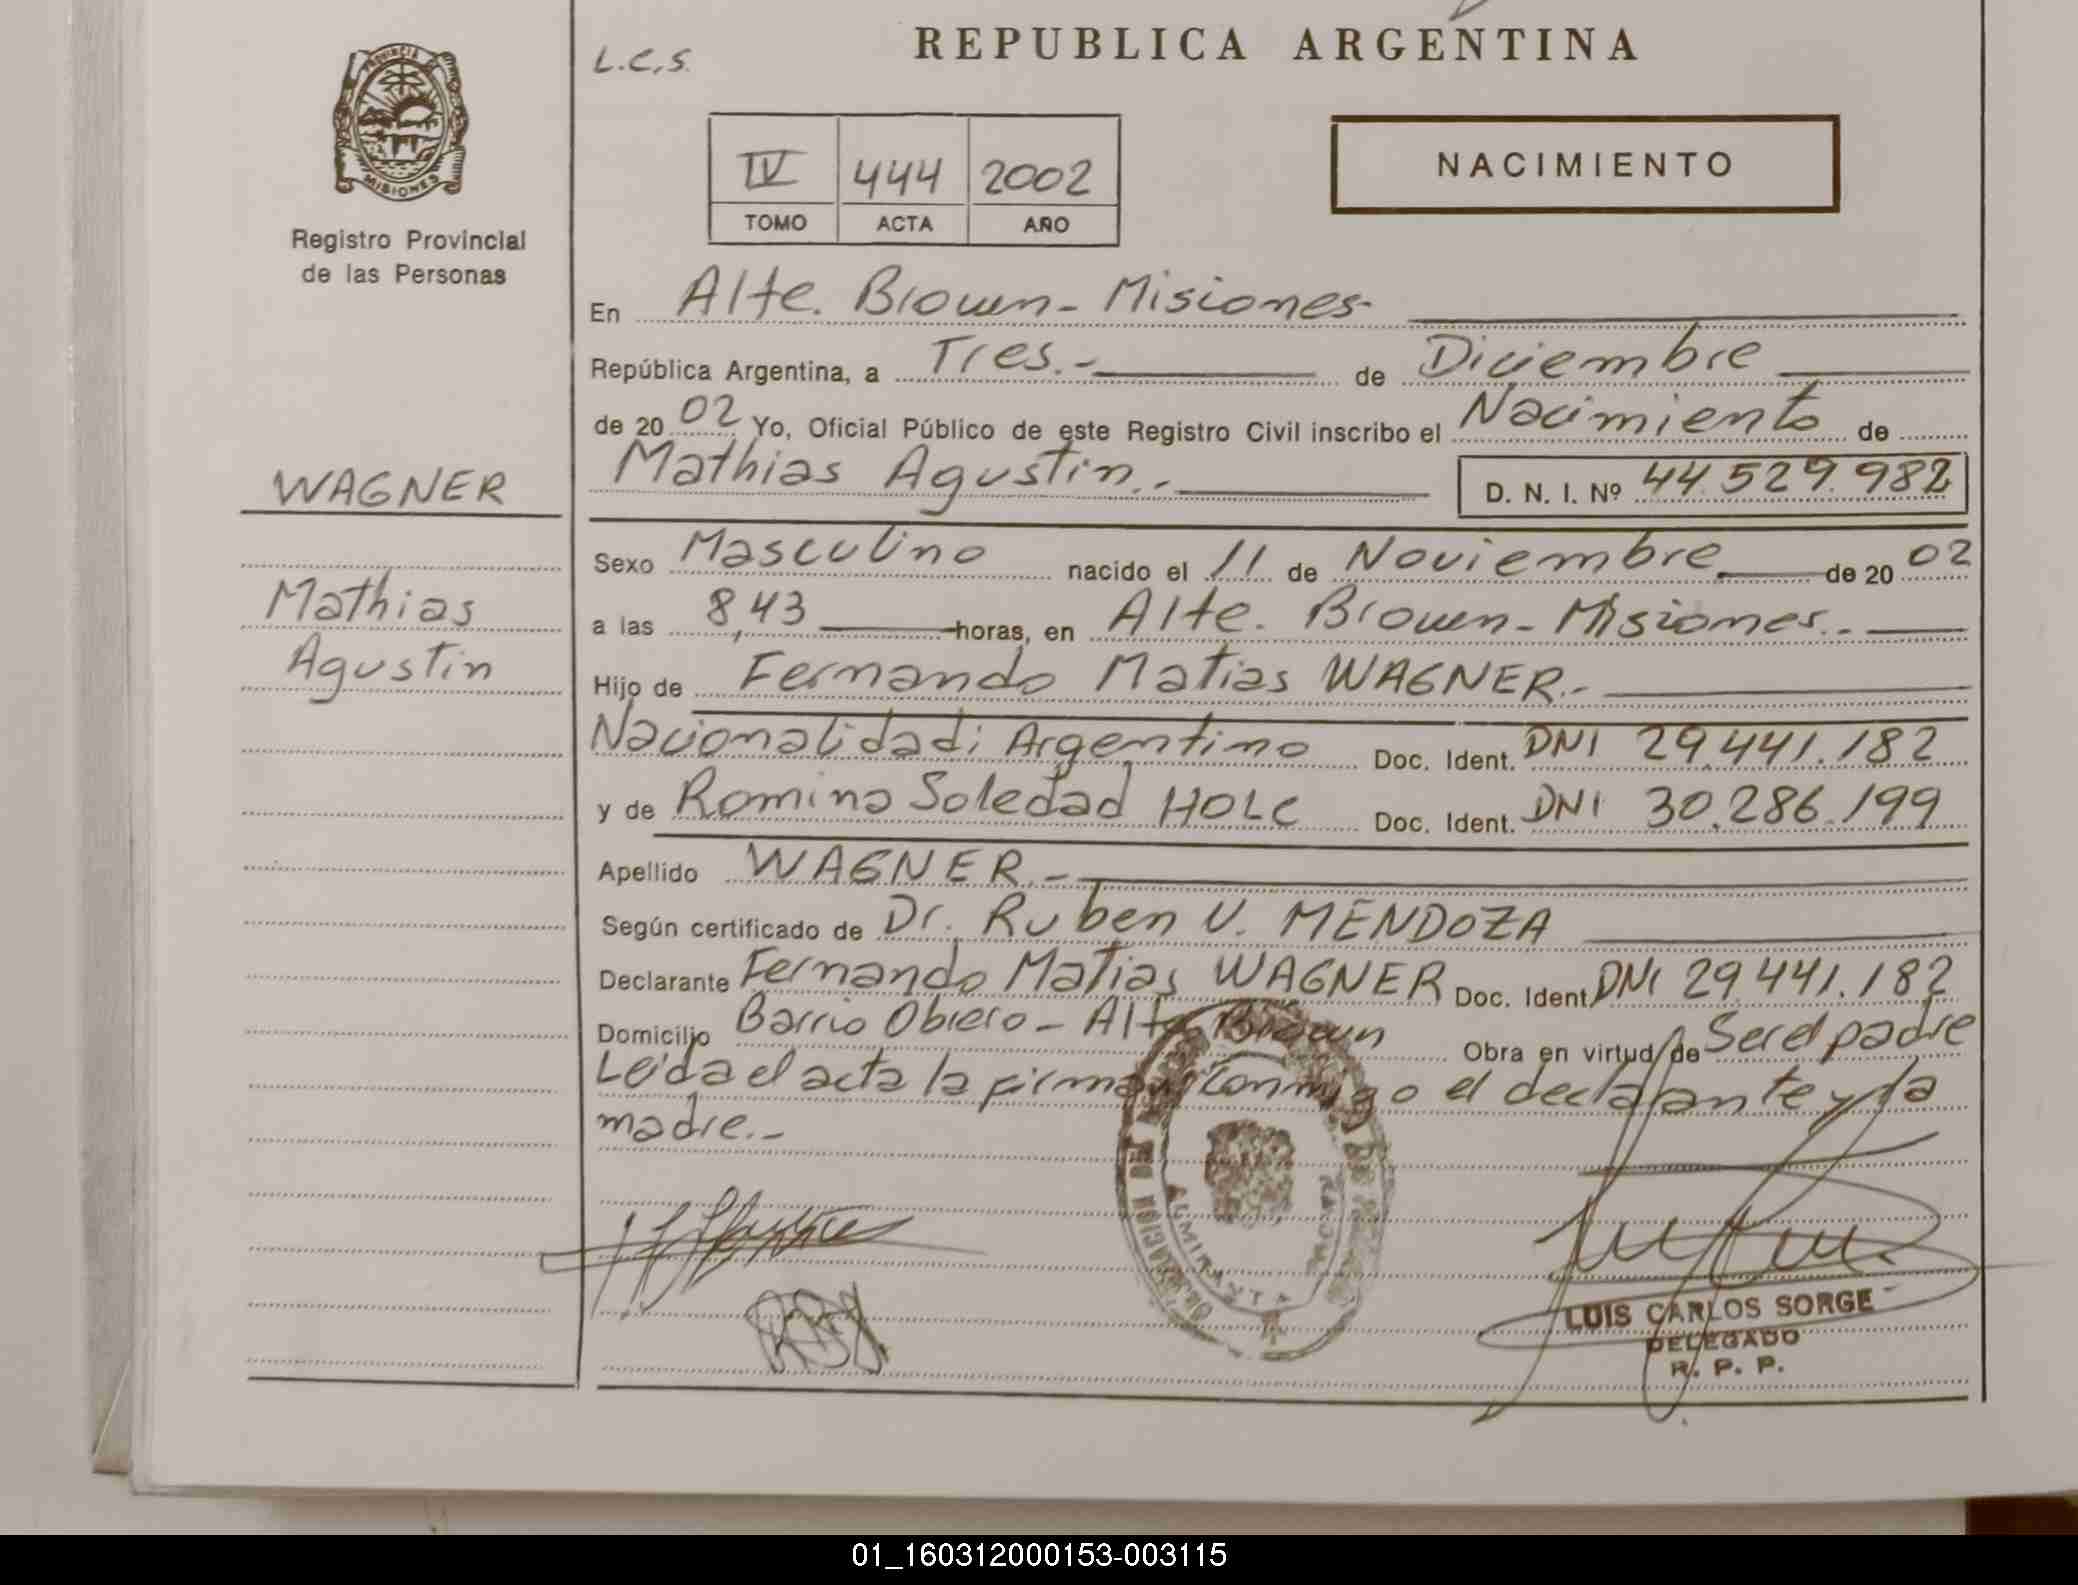 L.C.S.
REPUBLICA ARGENTINA
PROVINCIA DE
MISIONES
Registro Provincial
de las Personas
IV 444 2002
TOMO ACTA AÑO
NACIMIENTO
En Alte. Brown - Misiones
República Argentina, a Tres.- de Diciembre
de 2002 Yo, Oficial Público de este Registro Civil inscribo el Nacimiento de
Mathias Agustin.- D. N. I. Nº 44.529.982
WAGNER
Mathias
Agustin
Sexo Masculino nacido el 11 de Noviembre de 2002
a las 8,43 horas, en Alte. Brown - Misiones.-
Hijo de Fernando Matias WAGNER.-
Nacionalidad: Argentino Doc. Ident. DNI 29.441.182
y de Romina Soledad HOLC Doc. Ident. DNI 30.286.199
Apellido WAGNER.-
Según certificado de Dr. Ruben V. MENDOZA
Declarante Fernando Matias WAGNER Doc. Ident. DNI 29.441.182
Domicilio Barrio Obrero - Alte Brown Obra en virtud de Ser el padre
Leída el acta la firman conmigo el declarante y la
madre.-
ALMIRANTE
LUIS CARLOS SORGE
DELEGADO
R. P. P.
01_160312000153-003115